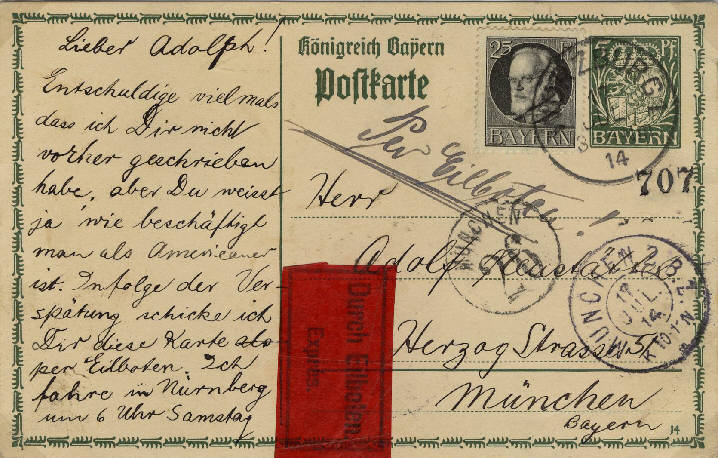 Lieber Adolph!
Entschuldige vielmals
dass ich Dir nicht
vorher geschrieben
habe, aber Du weisst
ja wie beschäftigt
man als Americaner
ist. Infolge der Ver-
spätung schicke ich
Dir diese Karte also
per Eilboten. Ich
fahre in Nürnberg
um 6 Uhr Samstag
Königreich Bayern
Postkarte
25
BAYERN
5 PF
BAYERN
WÜRZBURG 1
14
707
Per Eilboten!
Herr
Adolf
Herzog Strasse 51
München
Bayern
MÜNCHEN
MÜNCHEN 2 B.Z.
JUL.
14
K 10-11 N
Durch Eilboten
Exprès
14